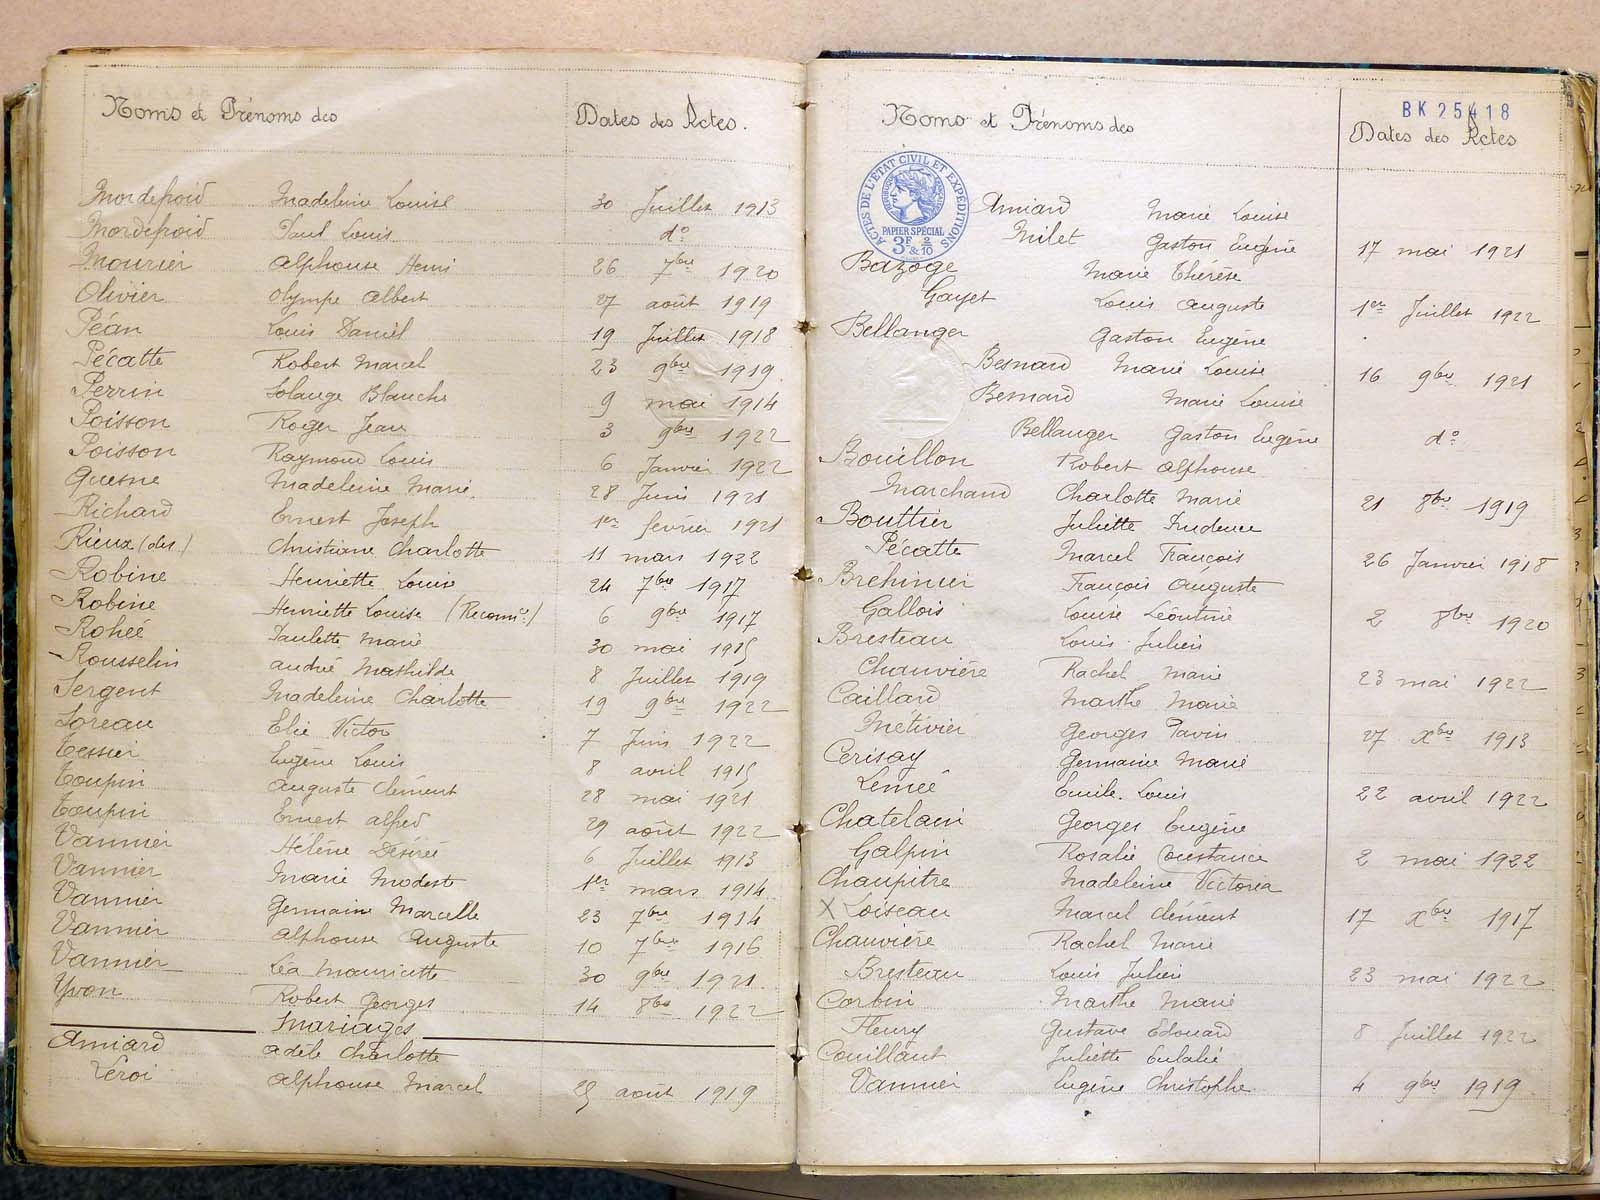 Noms et Prénoms des Dates des Actes.
Mordefroid Madeleine Louise 30 Juillet 1913
Mordefroid Paul Louis d°
Mourier Alphonse Henri 26 7bre 1920
Olivier Olympe Albert 27 août 1919
Péan Louis Daniel 19 Juillet 1918
Pécatte Robert Marcel 23 9bre 1919
Perrin Solange Blanche 9 mai 1914
Poisson Roger Jean 3 9bre 1922
Poisson Raymond Louis 6 Janvier 1922
Quesne Madeleine Marie 28 Juin 1921
Richard Ernest Joseph 1er février 1921
Rieux (des) Christiane Charlotte 11 mars 1922
Robine Henriette Louise 24 7bre 1917
Robine Henriette Louise (Reconn.ce) 6 9bre 1917
Rohéé Paulette Marie 30 mai 1915
Rousselin André Mathilde 8 Juillet 1919
Sergent Madeleine Charlotte 19 9bre 1922
Soreau Elie Victor 7 Juin 1922
Tessier Eugène Louis 8 avril 1915
Toupin Auguste Clément 28 mai 1921
Toupin Ernest Alfred 29 août 1922
Vannier Hélène Désirée 6 Juillet 1913
Vannier Marie Modeste 1er mars 1914
Vannier Germaine Marcelle 23 7bre 1914
Vannier Alphonse Auguste 10 7bre 1916
Vannier Léa Mauricette 30 9bre 1921
Yvon Robert Georges 14 8bre 1922
Mariages
Amiard Adèle Charlotte
Leroi Alphonse Marcel 25 août 1919
BK 25418
Noms et Prénoms des Dates des Actes
ACTES DE L'ÉTAT CIVIL ET EXPÉDITIONS
PAPIER SPÉCIAL
3F & 2/10
Amiard Marie Louise
Milet Gaston Eugène 17 mai 1921
Bazoge Marie Thérèse
Gayet Louis Auguste 1er Juillet 1922
Bellanger Gaston Eugène
Besnard Marie Louise 16 9bre 1921
Besnard Marie Louise
Bellanger Gaston Eugène d°
Bouillon Robert Alphonse
Marchand Charlotte Marie 21 8bre 1919
Bouttier Juliette Prudence
Pécatte Marcel François 26 Janvier 1918
Bréhinier François Auguste
Gallois Louise Léontine 2 8bre 1920
Bresteau Louis Julien
Chauvière Rachel Marie 23 mai 1922
Caillard Marthe Marie
Métivier Georges Pavin 27 Xbre 1913
Cerisay Germaine Marie
Lemée Emile Louis 22 avril 1922
Chatelain Georges Eugène
Galpin Rosalie Constance 2 mai 1922
Chaupitre Madeleine Victoria
X Loiseau Marcel Clément 17 Xbre 1917
Chauvière Rachel Marie
Bresteau Louis Julien 23 mai 1922
Corbin Marthe Marie
Fleury Gustave Edouard 8 Juillet 1922
Couillaut Juliette Eulalie
Vannier Eugène Christophe 4 9bre 1919